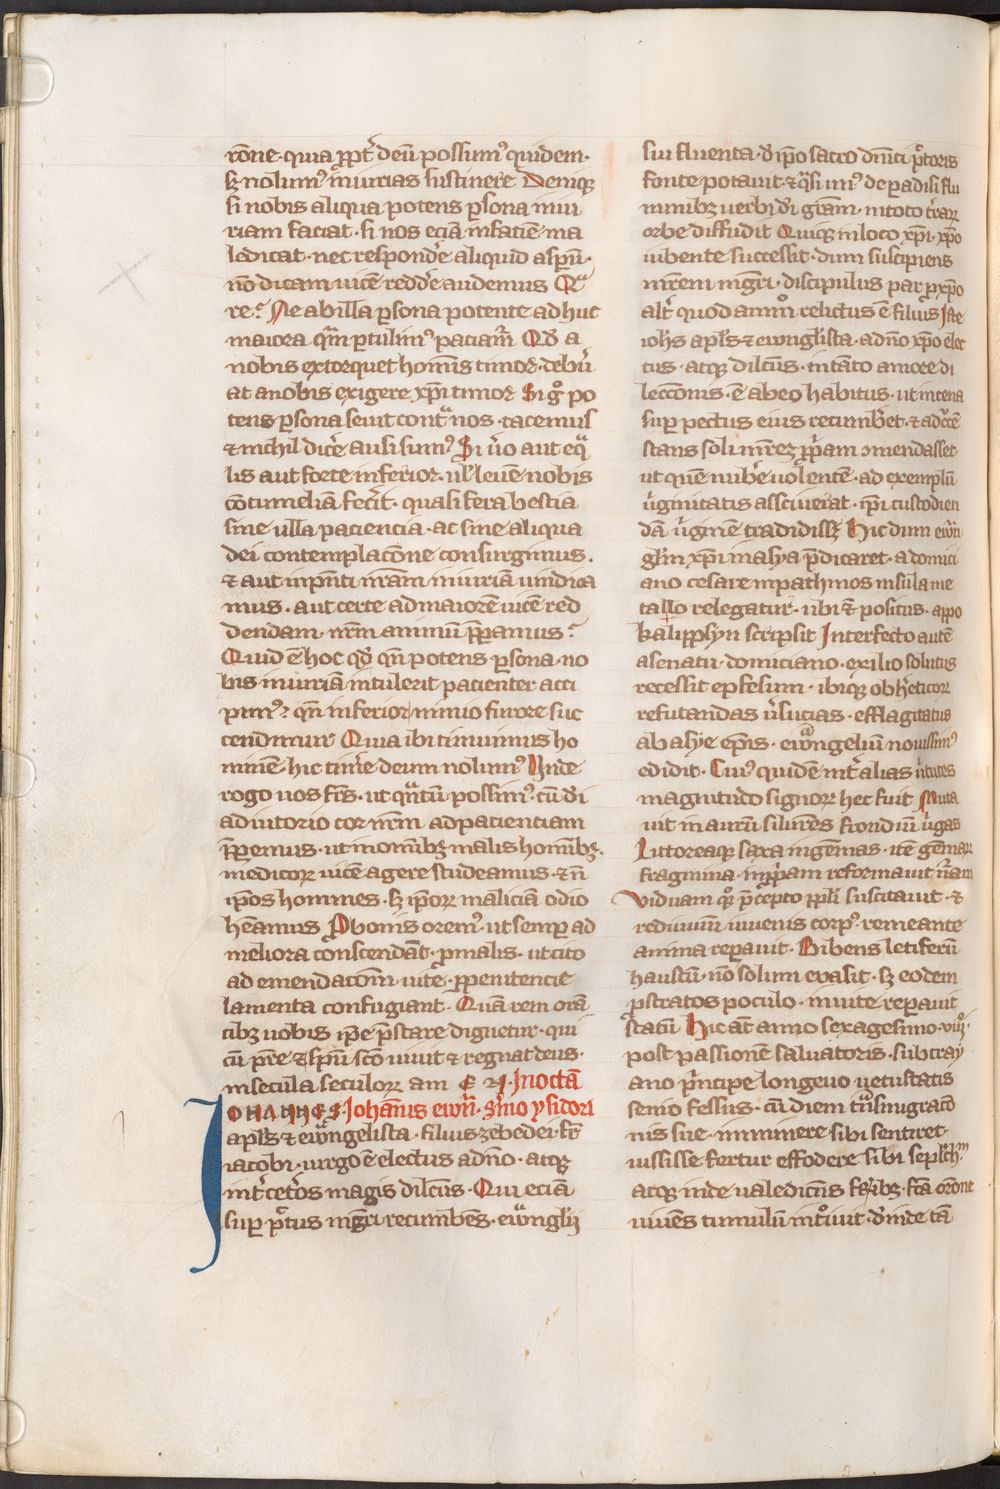 rōne · quia ꝓpt̄ deū possumꝰ quidem ·
sꝫ nolumꝰ iniurias sustinere Deniqꝫ
si nobis aliqua potens ꝑsona iniu
riam faciat · si nos eciā in faciē ma
ledicat · nec respondē aliquid asꝑū ·
nō dicam uicē reddē audemus Qᷓ
re? Ne ab illa ꝑsona potente adhuc
maiora qᷓm ꝑtulimꝰ paciam̄ Qd̄ a
nobis extorquet hom̄is timor · debūi
at a nobis exigere xp̄i timor Si gͦ po
tens ꝑsona seuit contᷓ nos · tacemus
⁊ nichil dicē ausi sumꝰ Si ūo aut eqᷓ
lis aut forte inferior · ul̄ leuē nobis
cōtumeliā fecīt · quasi fera bestia
sine ulla paciencia · ac sine aliqua
dei contemplacōne consurgimus ·
⁊ aut in p̄nti nr̄am iniuriā uindica
mus · aut certe ad maiorē uicē red
dendam · nr̄m animū p̄ꝑamus ?
Quid ē hoc qd̄ qn̄ potens ꝑsona no
bis iniuriā intulerit pacienter acci
pimꝰ ? qn̄ inferior nimio furore suc
cendimur Quia ibi timuimus ho
minē · hic timē deum nolumꝰ Unde
rogo uos fr̄s · ut qᷓntū possimꝰ · cū dī
adiutorio cor nr̄m ad pacienciam
p̄ꝑemus · ut in omībꝫ malis homībꝫ ·
medicoꝝ uicē agere studeamus · ⁊ n̄
ip̄os homines · sꝫ ip̄oꝝ maliciā odio
hēamus Ꝓ bonis oremꝰ · ut semꝑ ad
meliora conscendāt · ꝓ malis · ut cito
ad emendacōm uite · ꝑ penitencie
lamenta confugiant · Quā rem orā
tibꝫ uobis ip̄e p̄stare dignetur · qui
cū pr̄e ⁊ sp̄u sc̄o uiuit ⁊ regnat deus ·
in secula seculoꝝ am In octā
IOHANNES · Johānis ewn̄ · s̄mo ysidori
apl̄s ⁊ ewᷓngelista · filius zebedei · fr̄
iacobi · uirgo ē electus a dn̄o · atqꝫ
int̄ cet̄os magis dilc̄us · Qui eciā
suꝑ pͨtus mḡri recumbēs · ewᷓnglij
sui fluenta · d̄ ip̄o sacro dn̄ici pͨtoris
fonte potauit · ⁊ qᷓsi unꝰ de paradisi flu
minibꝫ uerbi dī grām · in toto t̄raꝝ
orbe diffudit Quiqꝫ in loco xp̄i · xp̄o
iubente successit · dum suscipiens
mr̄em mḡri · discipulus par ꝓ xp̄o
alt̄ quodāmͦ relictus ē filius Iste
iohs apl̄s ⁊ ewnglista · a dn̄o xp̄o elec
tus · atqꝫ dilc̄us · in tāto amore di
lecc̄onis · ē ab eo habitus · ut in cena
suꝑ pectus eius recumb̄et · ⁊ ad cͬcē
stans soli mr̄eꝫ ꝓp̄am ↄmendasset
ut quē nub̄e uolentē · ad exemplū
ūginitatis assciuerat · ip̄i custodien
dā ūginē tradidissꝫ Hic dum ewn̄
glm̄ xp̄i in asya p̄dicaret · a domici
ano cesare in pathmos insula me
tallo relegatur · ubi ⁊ positus · appo
kalipsyn scripsit Interfecto autē
a senatu · domiciano · exilio solutus
recessit ephesum · ibiqꝫ ob h̄eticoꝝ
refutandas ūsucias · efflagitatus
ab asye ep̄is · ewᷓngeliū nouissimꝰ
edidit · Cuiꝰ quidē int̄ alias ūtutes
magnitudo signoꝝ hec fuit Muta
uit in aurū siluēs frondiū ūgas
Littoreaqꝫ saxa in gēmas · itē gēmaꝝ
fragmina · in ꝓp̄am reformauit n̄am
Viduam qͦꝫ p̄cepto ppl̄i suscitauit · ⁊
rediuiuū iuuenis corpꝰ · remeante
anima reꝑauit · Bibens letiferū
haustū · nō solum euasit · sꝫ eodem
ꝓstratos poculo · in uite reꝑauit
statū Hic at̄ anno sexagesimo · viijͦ ·
post passionē saluatoris · sub tray
ano p̄ncipe longeuo uetustatis
senio fessus · cū diem tᷓnsmigracō
nis sue · imminere sibi sentiret ·
iussisse fertur effodere sibi sepl̄chͫ
atqꝫ inde ualedicēs fᷓtribꝫ · fc̄a orōne
uiuēs tumulū intͦiuit · d̄inde tā